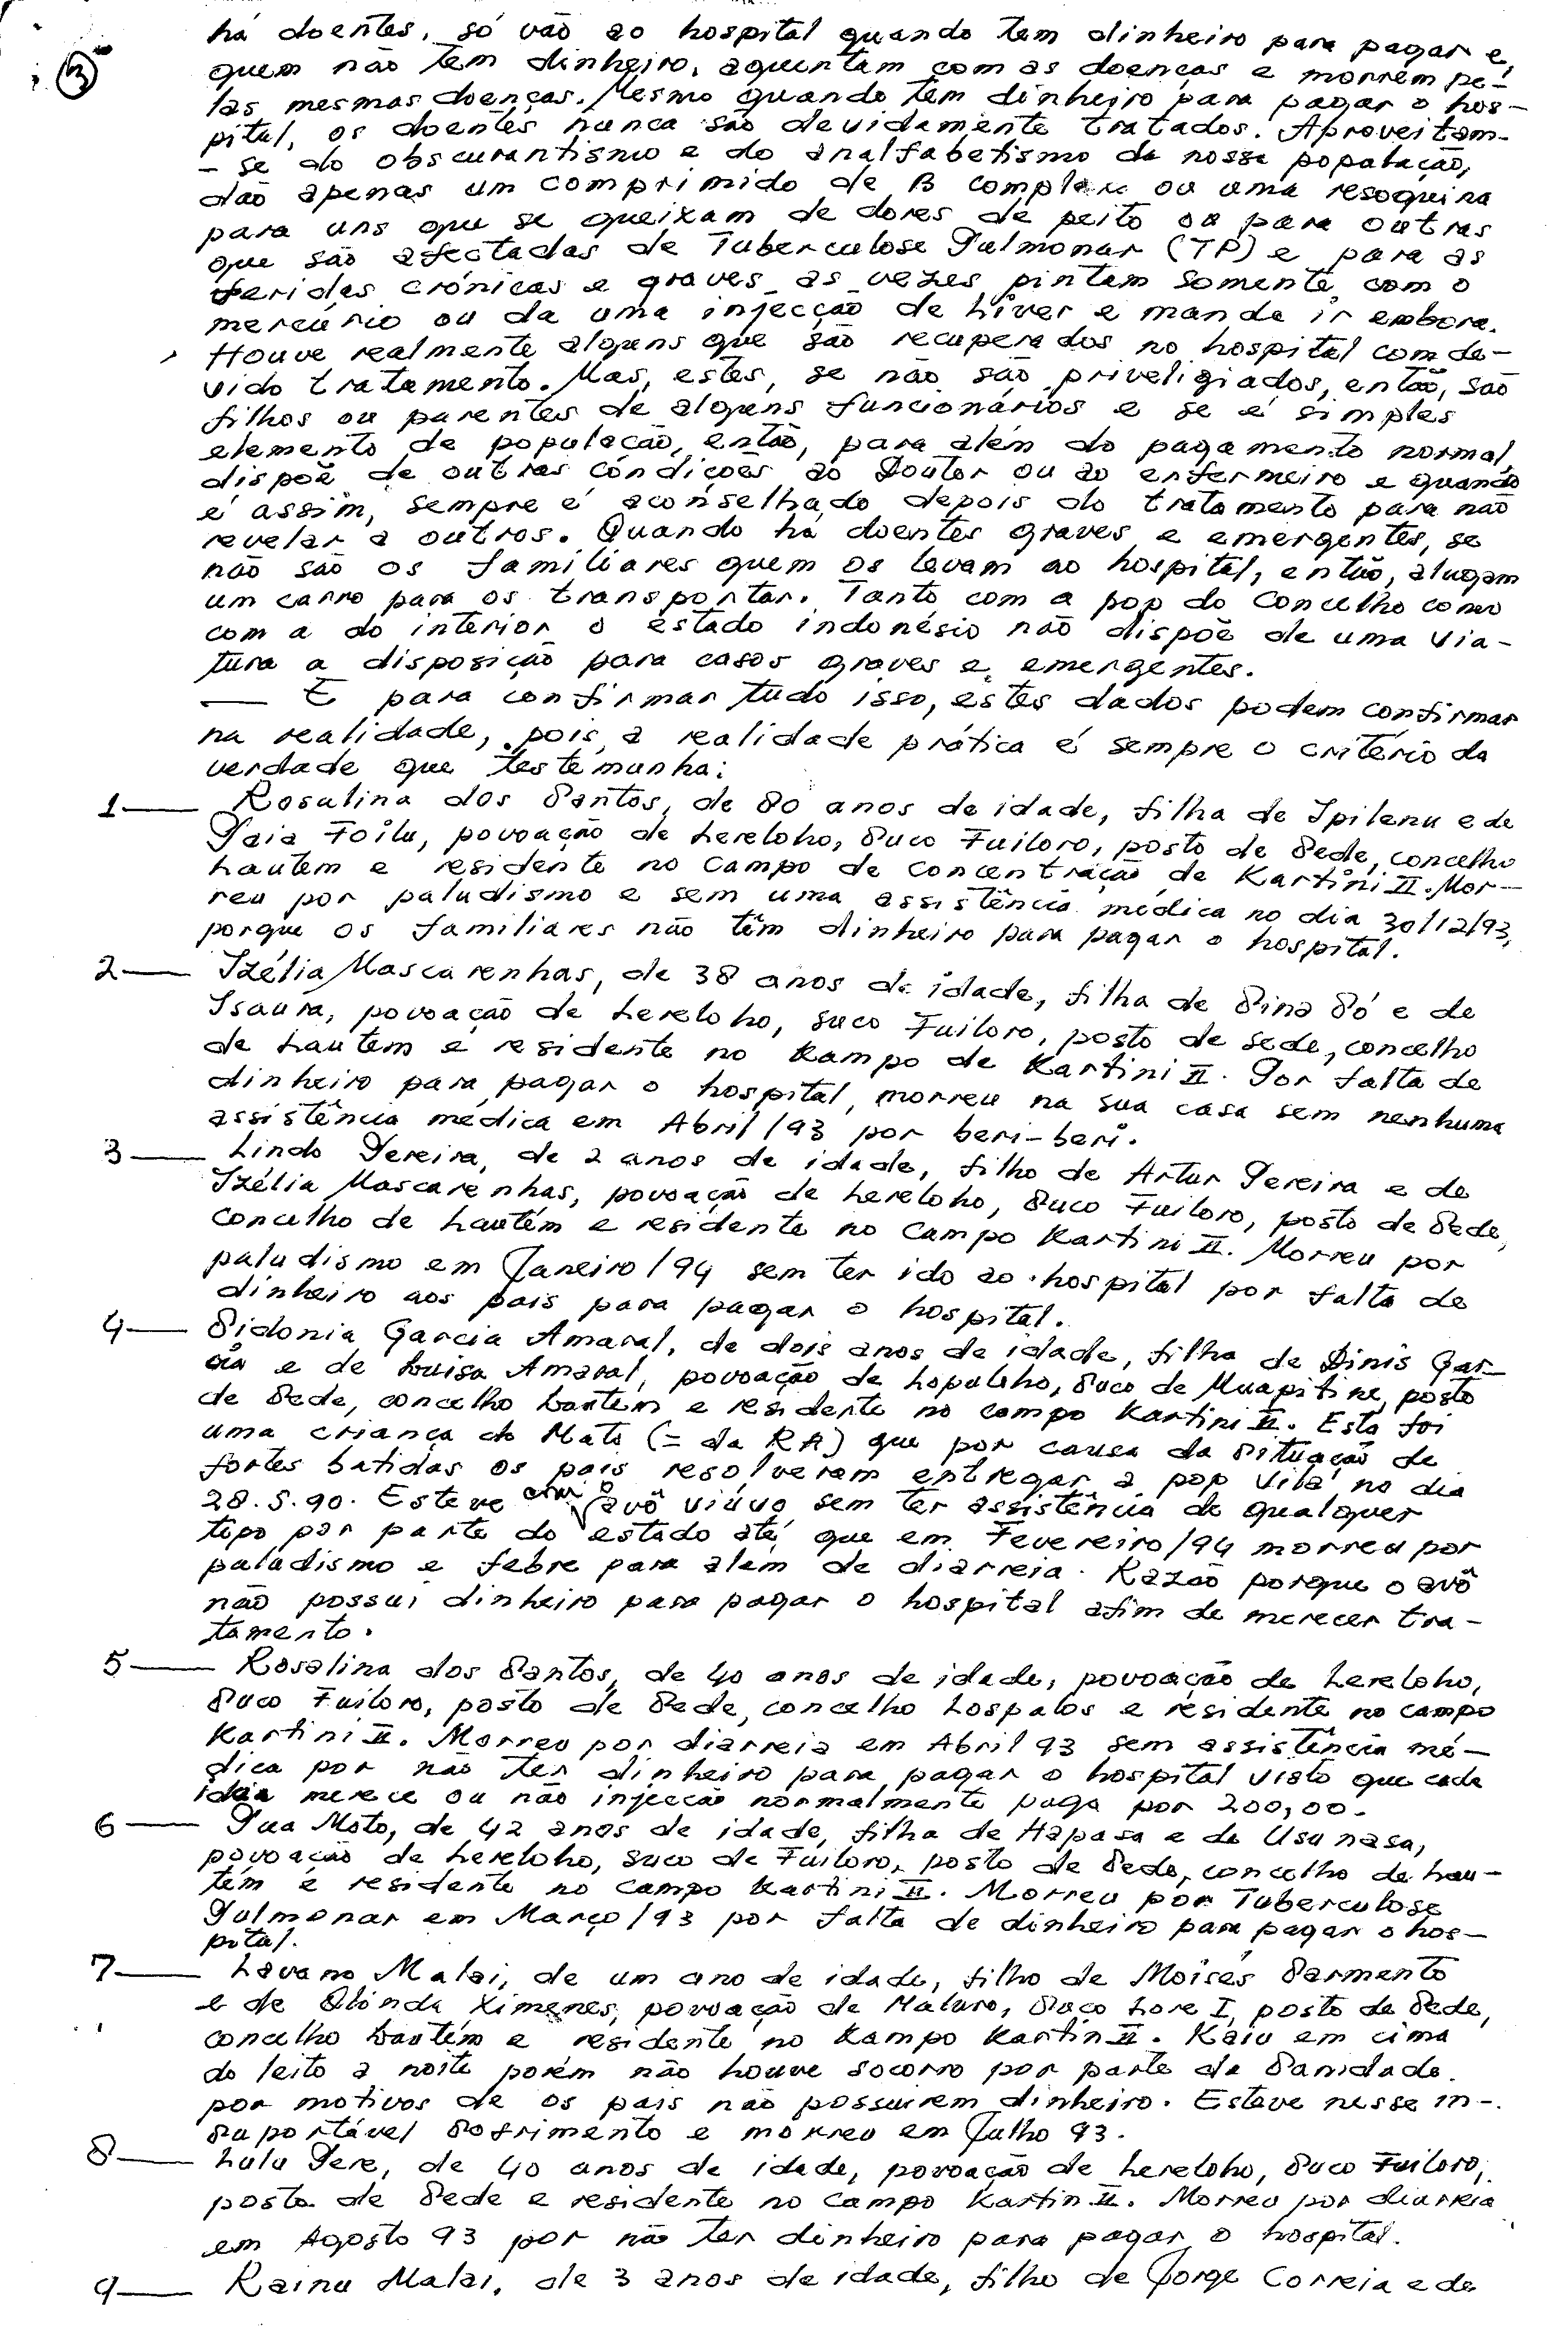 há doentes, só vão ao hospital quando tem dinheiro para pagar e,
3
quem não tem dinheiro, aguentam com as doenças e morrem pe-
las mesmas doenças. Mesmo quando tem dinheiro para pagar o hos-
pital, os doentes nunca são devidamente tratados. Aproveitam-
- se do obscurantismo e do analfabetismo da nossa população,
dão apenas um comprimido de B complexe ou uma resoqueina
para uns que se queixam de dores de peito ou para outras
que são afectadas de Tuberculose Pulmonar (TP) e para as
feridas crónicas e graves as vezes pintam somente com o
mercúrio ou da uma injecção de Liver e manda ir embora.
Houve realmente alguns que são recuperados no hospital com de-
vido tratamento. Mas, estes, se não são priveligiados, então, são
filhos ou parentes de alguns funcionários e se é simples
elemento de população, então, para além do pagamento normal,
dispoê de outras condições ao Doutor ou ao enfermeiro e quando
é assim, sempre é aconselhado depois do tratamento para não
revelar a outros. Quando há doentes graves e emergentes, se
não são os familiares quem os levam ao hospital, então, alugam
um carro para os transportar. Tanto com a pop do Concelho como
com a do interior o estado indonésio não dispoê de uma via-
tura a disposição para casos graves e emergentes.
— E para confirmar tudo isso, estes dados podem confirmar
na realidade, pois a realidade prática é sempre o critério da
verdade que testemunha:
1 — Rosalina dos Santos, de 80 anos de idade, filha de Ipilanu e de
Paia Foilu, povoação de Lereloho, Suco Fuiloro, posto de Sede, concelho
Lautem e residente no Campo de Concentração de Kartini II. Mor-
reu por paludismo e sem uma assistência médica no dia 30/12/93,
porque os familiares não têm dinheiro para pagar o hospital.
2 — Izélia Mascarenhas, de 38 anos de idade, filha de Sina Só e de
Isaura, povoação de Lereloho, suco Fuiloro, posto de sede, concelho
de Lautem e residente no Kampo de Kartini II. Por falta de
dinheiro para pagar o hospital, morreu na sua casa sem nenhuma
assistência médica em Abril/93 por beri-beri.
3 — Lindo Pereira, de 2 anos de idade, filho de Artur Pereira e de
Izélia Mascarenhas, povoação de Lereloho, Suco Fuiloro, posto de Sede,
concelho de Lautém e residente no Campo Kartini II. Morreu por
paludismo em Janeiro/94 sem ter ido ao hospital por falta de
dinheiro aos pais para pagar o hospital.
4 — Sidonia Garcia Amaral, de dois anos de idade, filha de Dinis Gar-
cia e de Luisa Amaral, povoação de Lopuloho, Suco de Muapitine, posto
de Sede, concelho Lautem e residente no campo Kartini II. Esta foi
uma criança do Mato (= da RA) que por causa da situação de
fortes batidas os pais resolveram entregar a pop vila no dia
28.5.90. Esteve com o avô viúvo sem ter assistência de qualquer
tipo por parte do estado até que em Fevereiro/94 morreu por
paludismo e febre para além de diarreia. Razão porque o avô
não possui dinheiro para pagar o hospital afim de merecer tra-
tamento.
5 — Rosalina dos Santos, de 40 anos de idade, povoação de Lereloho,
Suco Fuiloro, posto de Sede, concelho Lospalos e residente no campo
Kartini II. Morreu por diarreia em Abril 93 sem assistência mé-
dica por não ter dinheiro para pagar o hospital visto que cada
merece ou não injecção normalmente paga por 200,00.
6 — Pua Moto, de 42 anos de idade, filha de Hapasa e de Usunasa,
povoação de Lereloho, suco de Fuiloro, posto de Sede, concelho de Lau-
tém e residente no campo Kartini II. Morreu por Tuberculose
Pulmonar em Março/93 por falta de dinheiro para pagar o hos-
pital.
7 — Lavano Malai, de um ano de idade, filho de Moisés Sarmento
e de Olinda Ximenes, povoação de Maluro, Suco Lore I, posto de Sede,
concelho Lautém e residente no Kampo Kartin II. Kaiu em cima
do leito a noite porém não houve socorro por parte da Sanidade
por motivos de os pais não possuirem dinheiro. Esteve nesse in-
suportável sofrimento e morreu em Julho 93.
8 — Lulu Pere, de 40 anos de idade, povoação de Lereloho, Suco Fuiloro,
posto de Sede e residente no campo Kartin II. Morreu por diarreia
em Agosto 93 por não ter dinheiro para pagar o hospital.
9 — Rainu Malai, de 3 anos de idade, filho de Jorge Correia e de